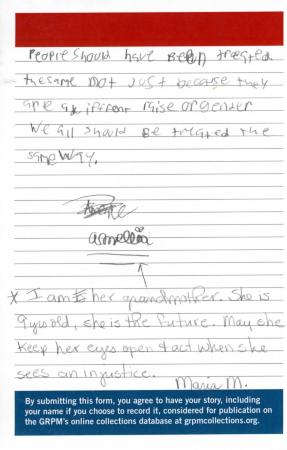 People should have been treated
the same not just because they
are a different raise or gender
we all should be treated the
same way.
armellia
* I am her grandmother. She is
9 yrs old, she is the future. May she
keep her eyes open & act when she
sees an injustice.
Maria M.
By submitting this form, you agree to have your story, including
your name if you choose to record it, considered for publication on
the GRPM's online collections database at grpmcollections.org.